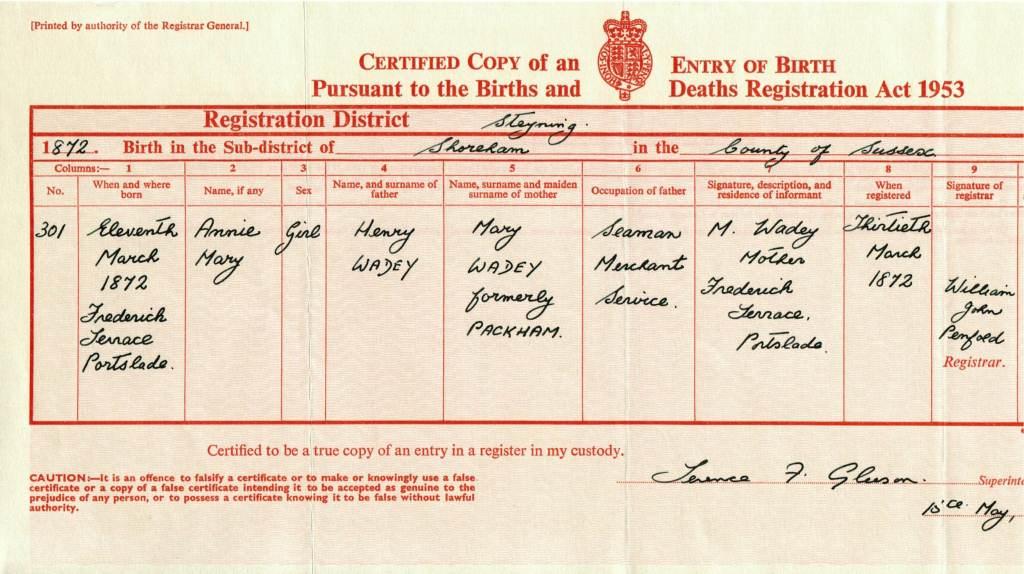 [Printed by authority of the Registrar General.]
CERTIFIED COPY of an ENTRY OF BIRTH
Pursuant to the Births and Deaths Registration Act 1953
Registration District Steyning.
1872. Birth in the Sub-district of Shoreham in the County of Sussex
Columns:— 1 2 3 4 5 6 7 8 9
No. When and where born Name, if any Sex Name, and surname of father Name, surname and maiden surname of mother Occupation of father Signature, description, and residence of informant When registered Signature of registrar
301 Eleventh Annie Girl Henry Mary Seaman M. Wadey Thirtieth
March Mary WADEY WADEY Merchant Mother March
1872 formerly Service. Frederick 1872 William
Frederick PACKHAM. Terrace, John
Terrace Portslade. Penfold
Portslade. Registrar.
Certified to be a true copy of an entry in a register in my custody.
CAUTION:—It is an offence to falsify a certificate or to make or knowingly use a false
certificate or a copy of a false certificate intending it to be accepted as genuine to the
prejudice of any person, or to possess a certificate knowing it to be false without lawful
authority.
Terence F. Gleeson. Superinte
May,